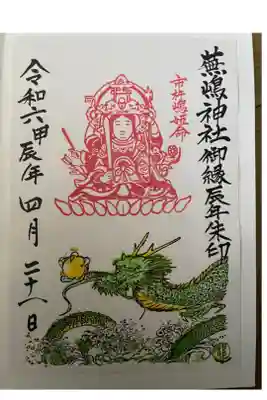 蕪嶋神社御縁辰年朱印
市杵嶋姫命
令和六甲辰年 四月 二十八日